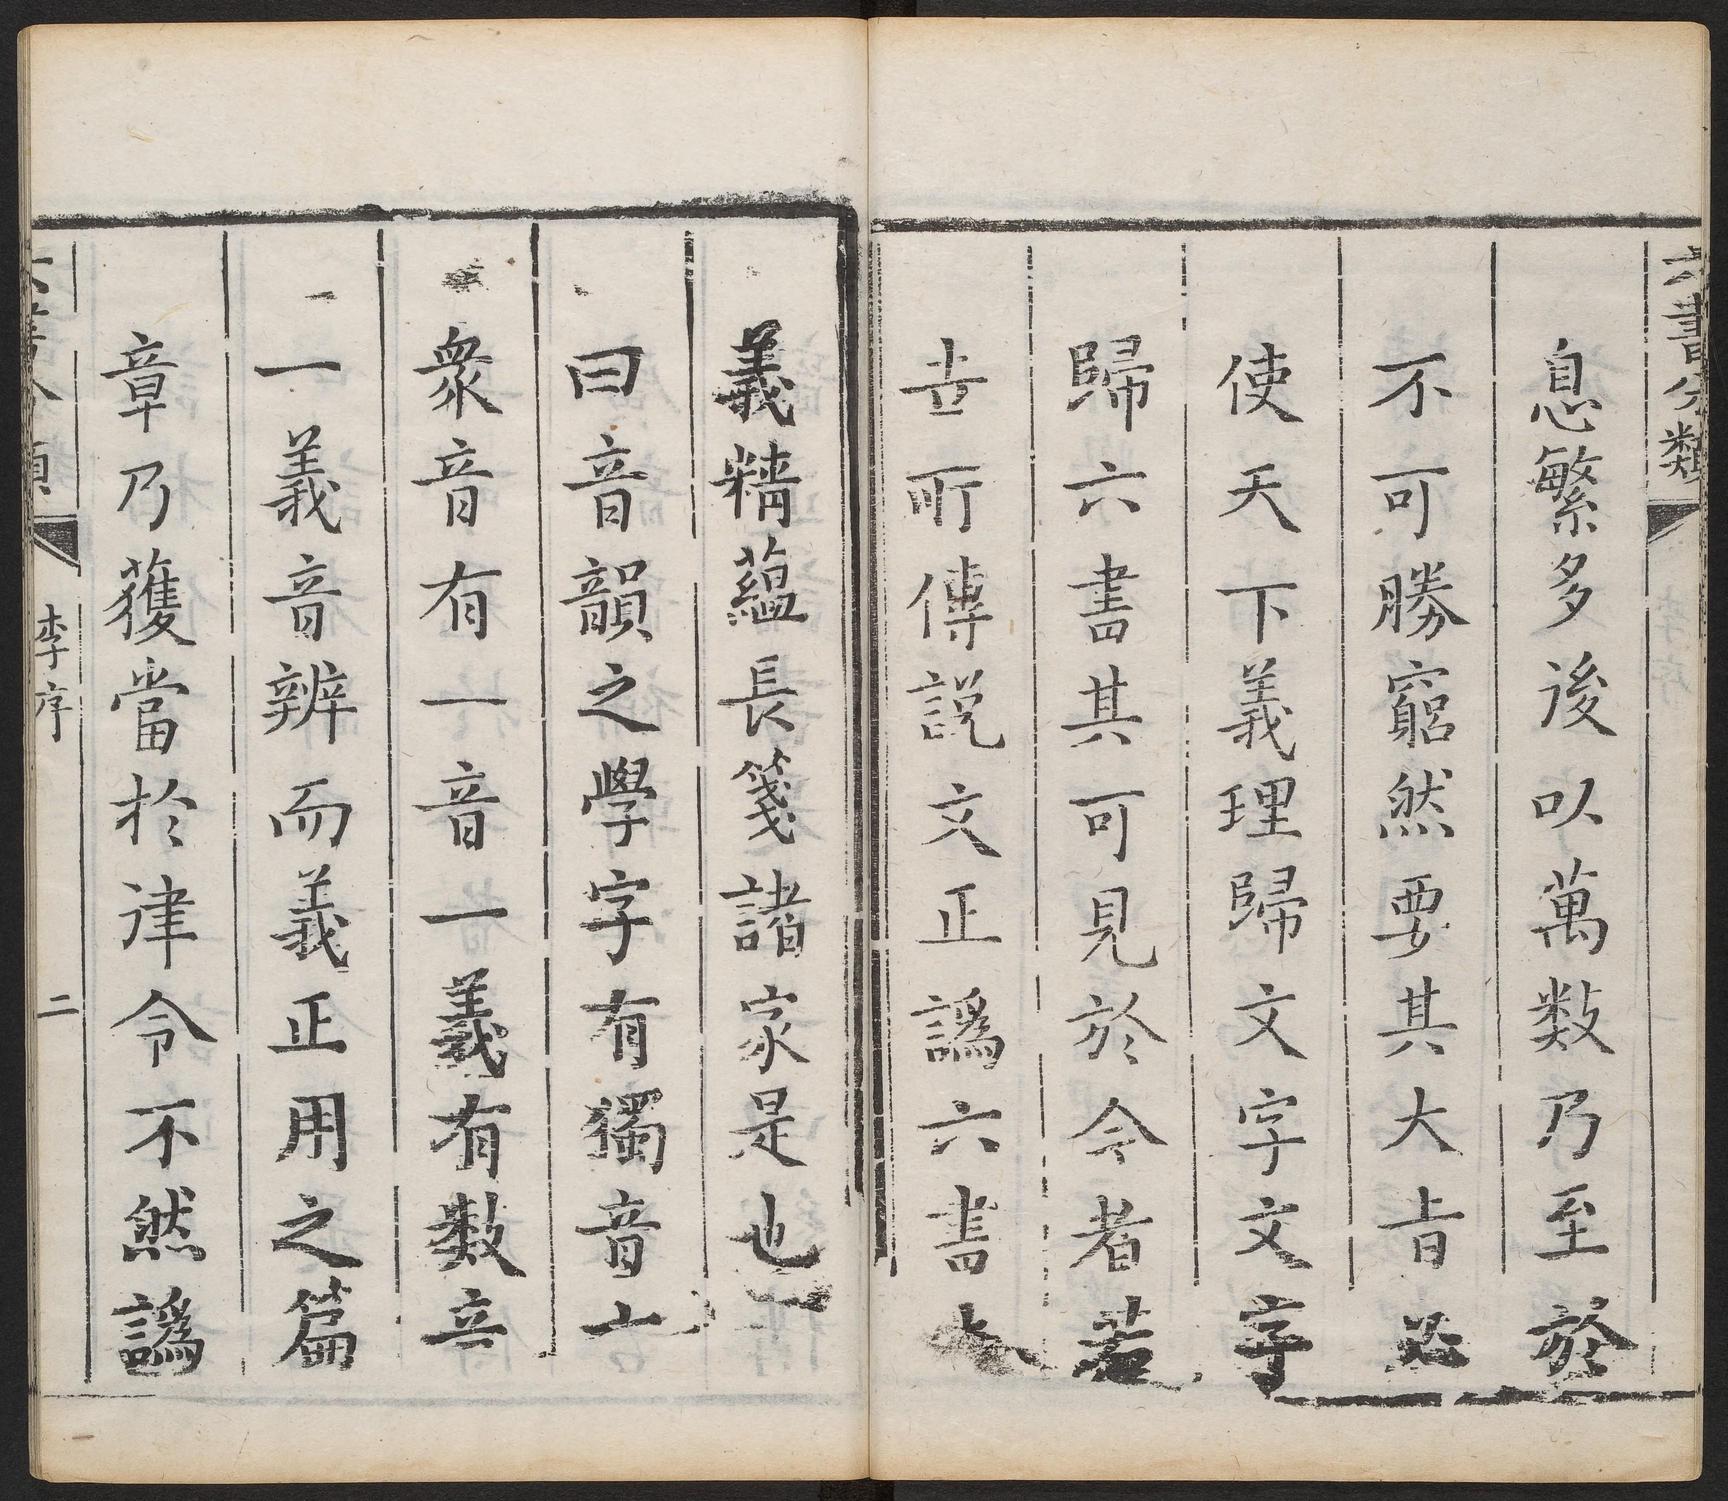 六書分類
息繁多後以萬数乃至於
不可勝窮然要其大㫖必
使天下義理歸文字文字
歸六書其可見於今者若
丗所傳説文正譌六書
義精藴長箋諸家是也
曰音韻之學字有獨音
衆音有一音一義有数音
一義音辨而義正用之篇
章乃獲當扵律令不然譌
李序
二